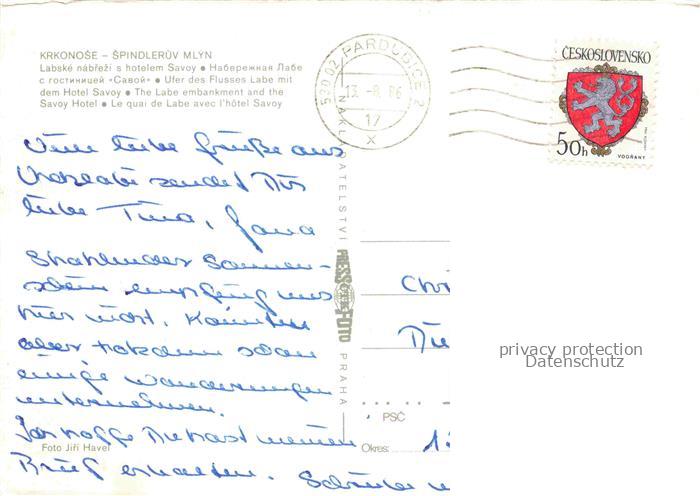 KRKONOŠE – ŠPINDLERŮV MLÝN
Labské nábřeží s hotelem Savoy ● Набережная Лабе
с гостиницей «Савой» ● Ufer des Flusses Labe mit
dem Hotel Savoy ● The Labe embankment and the
Savoy Hotel ● Le quai de Labe avec l'hôtel Savoy
53002 PARDUBICE 2
13.-8.86
17
X
ČESKOSLOVENSKO
50h
VODŇANY
liebe Grüße aus
sendet Dir
liebe Tina, Jana
Strahlender Sonnen-
schein empfing uns
hier nicht. Konnten
aber trotzdem schon
einige Wanderungen
unternehmen.
Ich hoffe Du hast meinen
Brief erhalten. Schreibe
NAKLADATELSTVÍ
PRESSFOTO
PRAHA
Chri
privacy protection
Datenschutz
PSČ
Okres:
Foto Jiří Havel